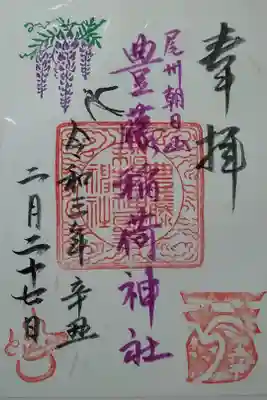 奉拝
尾州朝日山
豊藤稲荷神社
令和三年 辛丑
二月二十七日